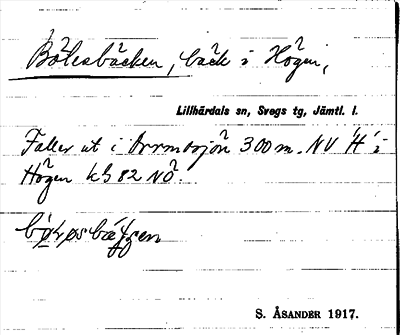 Bölesbäcken, bäck i Högen,
Lillhärdals sn, Svegs tg, Jämtl. l.
Faller ut i Orrmosjön 300 m. NV H i
Högen kb 82 NÖ.
S. ÅSANDER 1917.